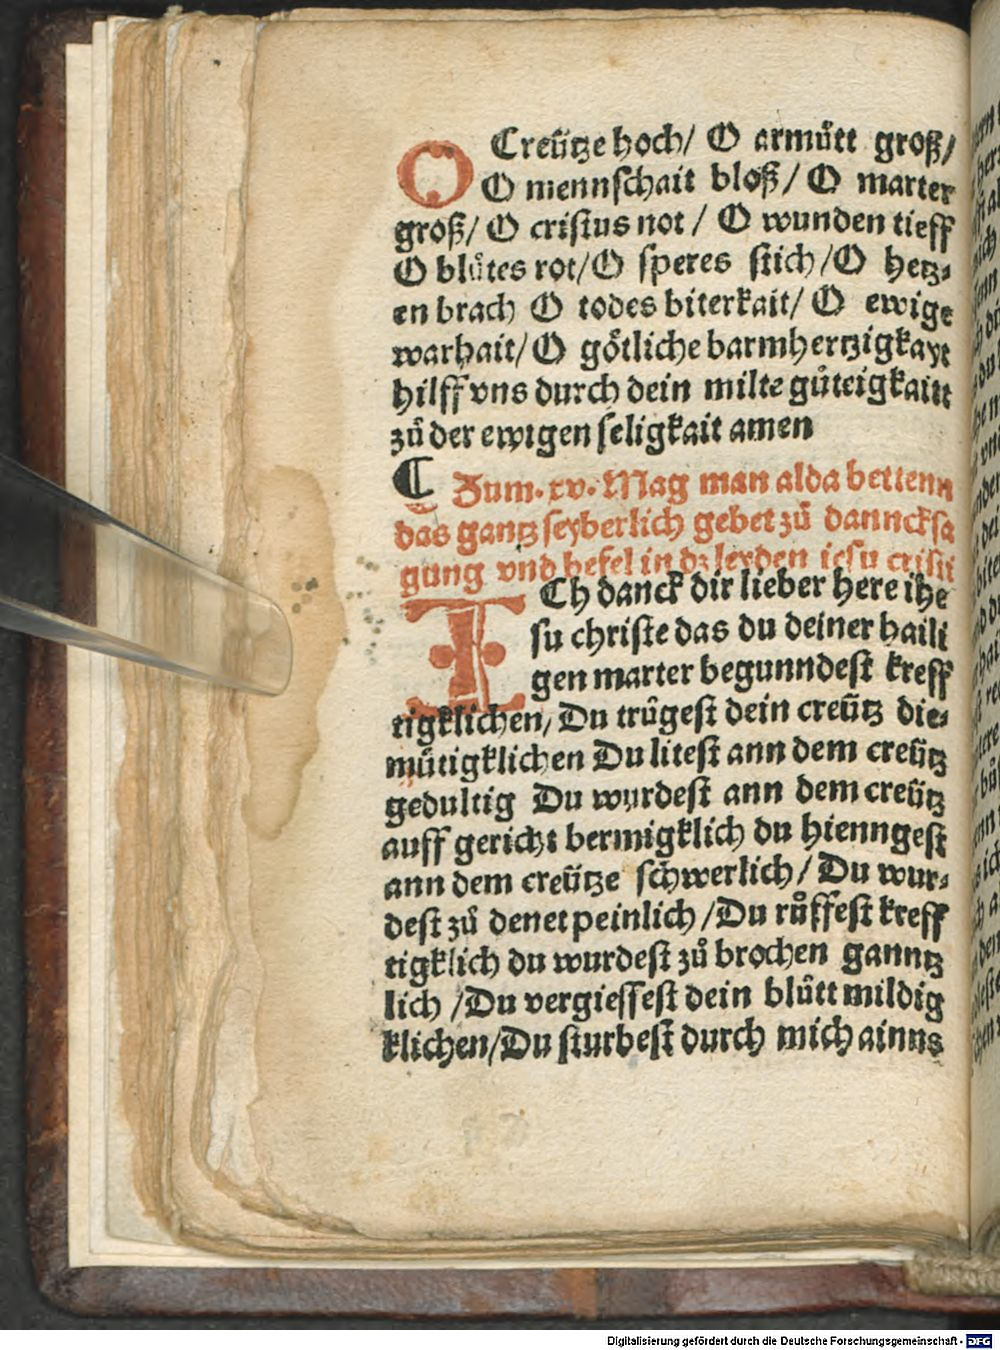 O Creűtze hoch/ O armůtt groß/
O mennschait bloß/ O marter
groß/ O cristus not / O wunden tieff
O blůtes rot/ O speres stich/ O hertz⸗
en brach O todes biterkait/ O ewige
warhait/ O götliche barmhertzigkayt
hilff vns durch dein milte gůteigkaitt
zů der ewigen seligkait amen
¶ Zum. xv. Mag man alda bettenn
das gantz seyberlich gebet zů dancksa
gung vnd befel in dz leyden iesu cristi
ICh danck dir lieber here ihe
su christe das du deiner haili
gen marter begunndest kreff
tigklichen/ Du trůgest dein creűtz die⸗
műtigklichen Du litest ann dem creűtz
gedultig Du wurdest ann dem creűtz
auff gericht bermigklich du hienngest
ann dem creűtze schwerlich/ Du wur⸗
dest zů denet peinlich/ Du růffest kreff
tigklich du wurdest zů brochen ganntz
lich / Du vergiessest dein blůtt mildig
klichen/ Du sturbest durch mich ainns
Digitalisierung gefördert durch die Deutsche Forschungsgemeinschaft - DFG